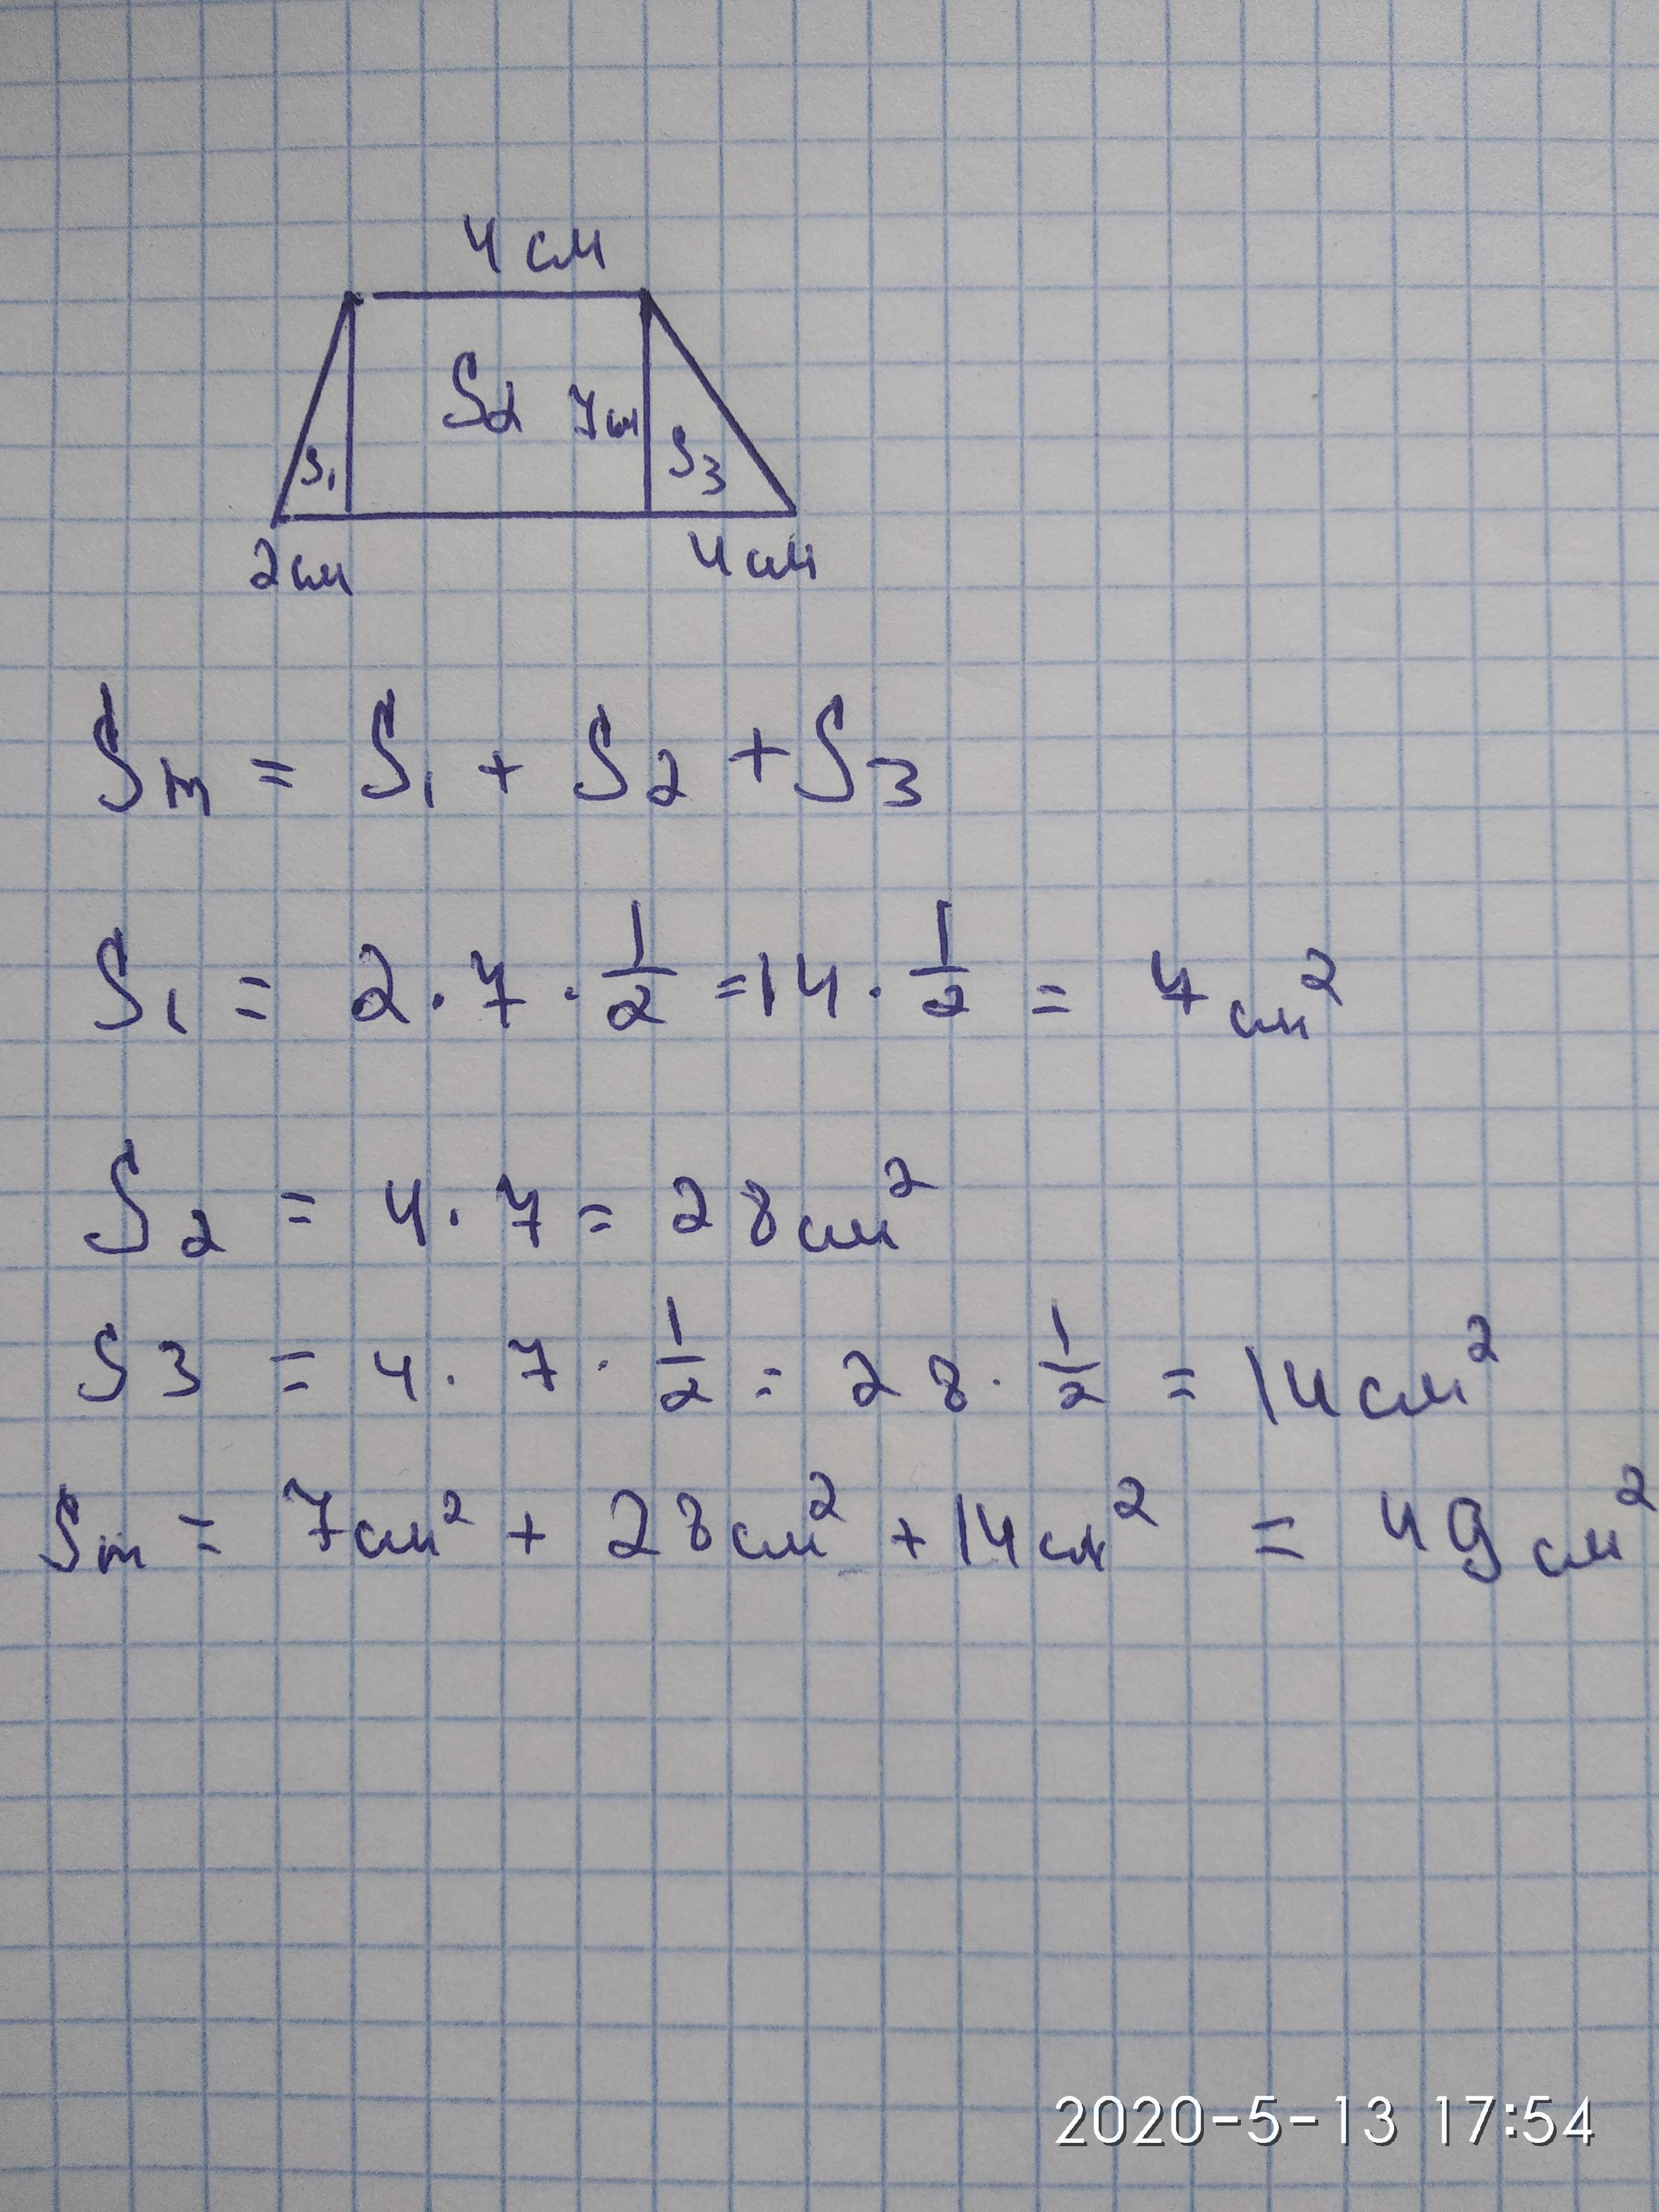 4 см
S2 7см
S1 S3
2см 4см
Sт = S1 + S2 + S3
S1 = 2 · 7 · 1/2 = 14 · 1/2 = 7 см²
S2 = 4 · 7 = 28 см²
S3 = 4 · 7 · 1/2 = 28 · 1/2 = 14 см²
Sт = 7см² + 28см² + 14см² = 49 см²
2020-5-13 17:54